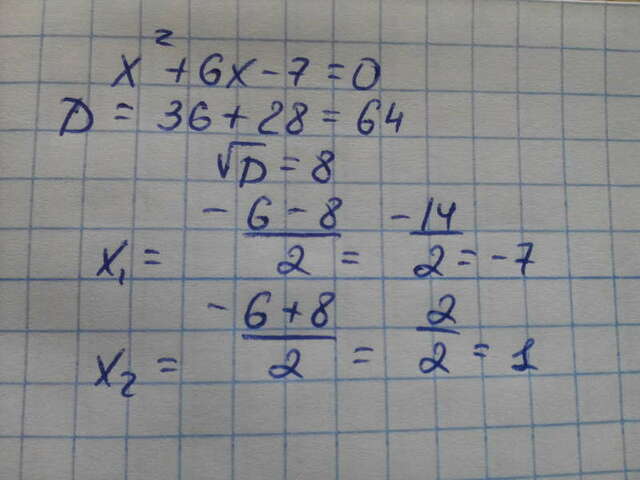 x² + 6x - 7 = 0
D = 36 + 28 = 64
√D = 8
x₁ = (-6 - 8)/2 = -14/2 = -7
x₂ = (-6 + 8)/2 = 2/2 = 1